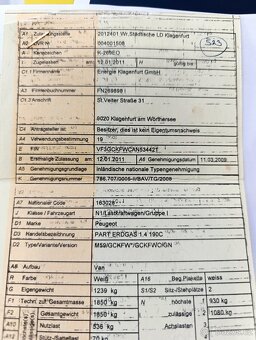 A1 Zulassungsstelle 2012401 Wr.Städtische LD Klagenfurt
004001508 523
A Kennzeichen K-266EO
Zugelassen am 12.01.2011 H gültig bis
C1.1 Firmenname Energie Klagenfurt GmbH
A3 Firmenbuchnummer FN269898
C1.3 Anschrift St.Veiter Straße 31
9020 Klagenfurt am Wörthersee
C4 Antragsteller ist: Besitzer, dies ist kein Eigentumsnachweis
A4 Verwendungsbestimmung 19
E FIN
B Erstmalige Zulassung am 12.01.2011 A6 Genehmigungsdatum 11.03.2009
A5 Genehmigungsgrundlage inländische nationale Typengenehmigung
K Genehmigungsnummer
A7 Nationaler Code 163026
J Klasse / Fahrzeugart N1/Lastkraftwagen/Gruppe I
D1 Marke Peugeot
D3 Handelsbezeichnung PART ERDGAS 1.4 190C
D2 Type/Variante/Version
A8 Aufbau Van
R Farbe Weiß A16 Beg.Plakette weiss
G Eigengewicht 1239 kg S1/S2 Sitz-/Stehplätze 2
F1 Techn. zul. Gesamtmasse 1850 kg N höchste 1 930 kg
F2 Gesamtgewicht 1850 kg zulässige 2 1080 kg
A10 Nutzlast 536 kg Achslasten 3
Stützlast 70